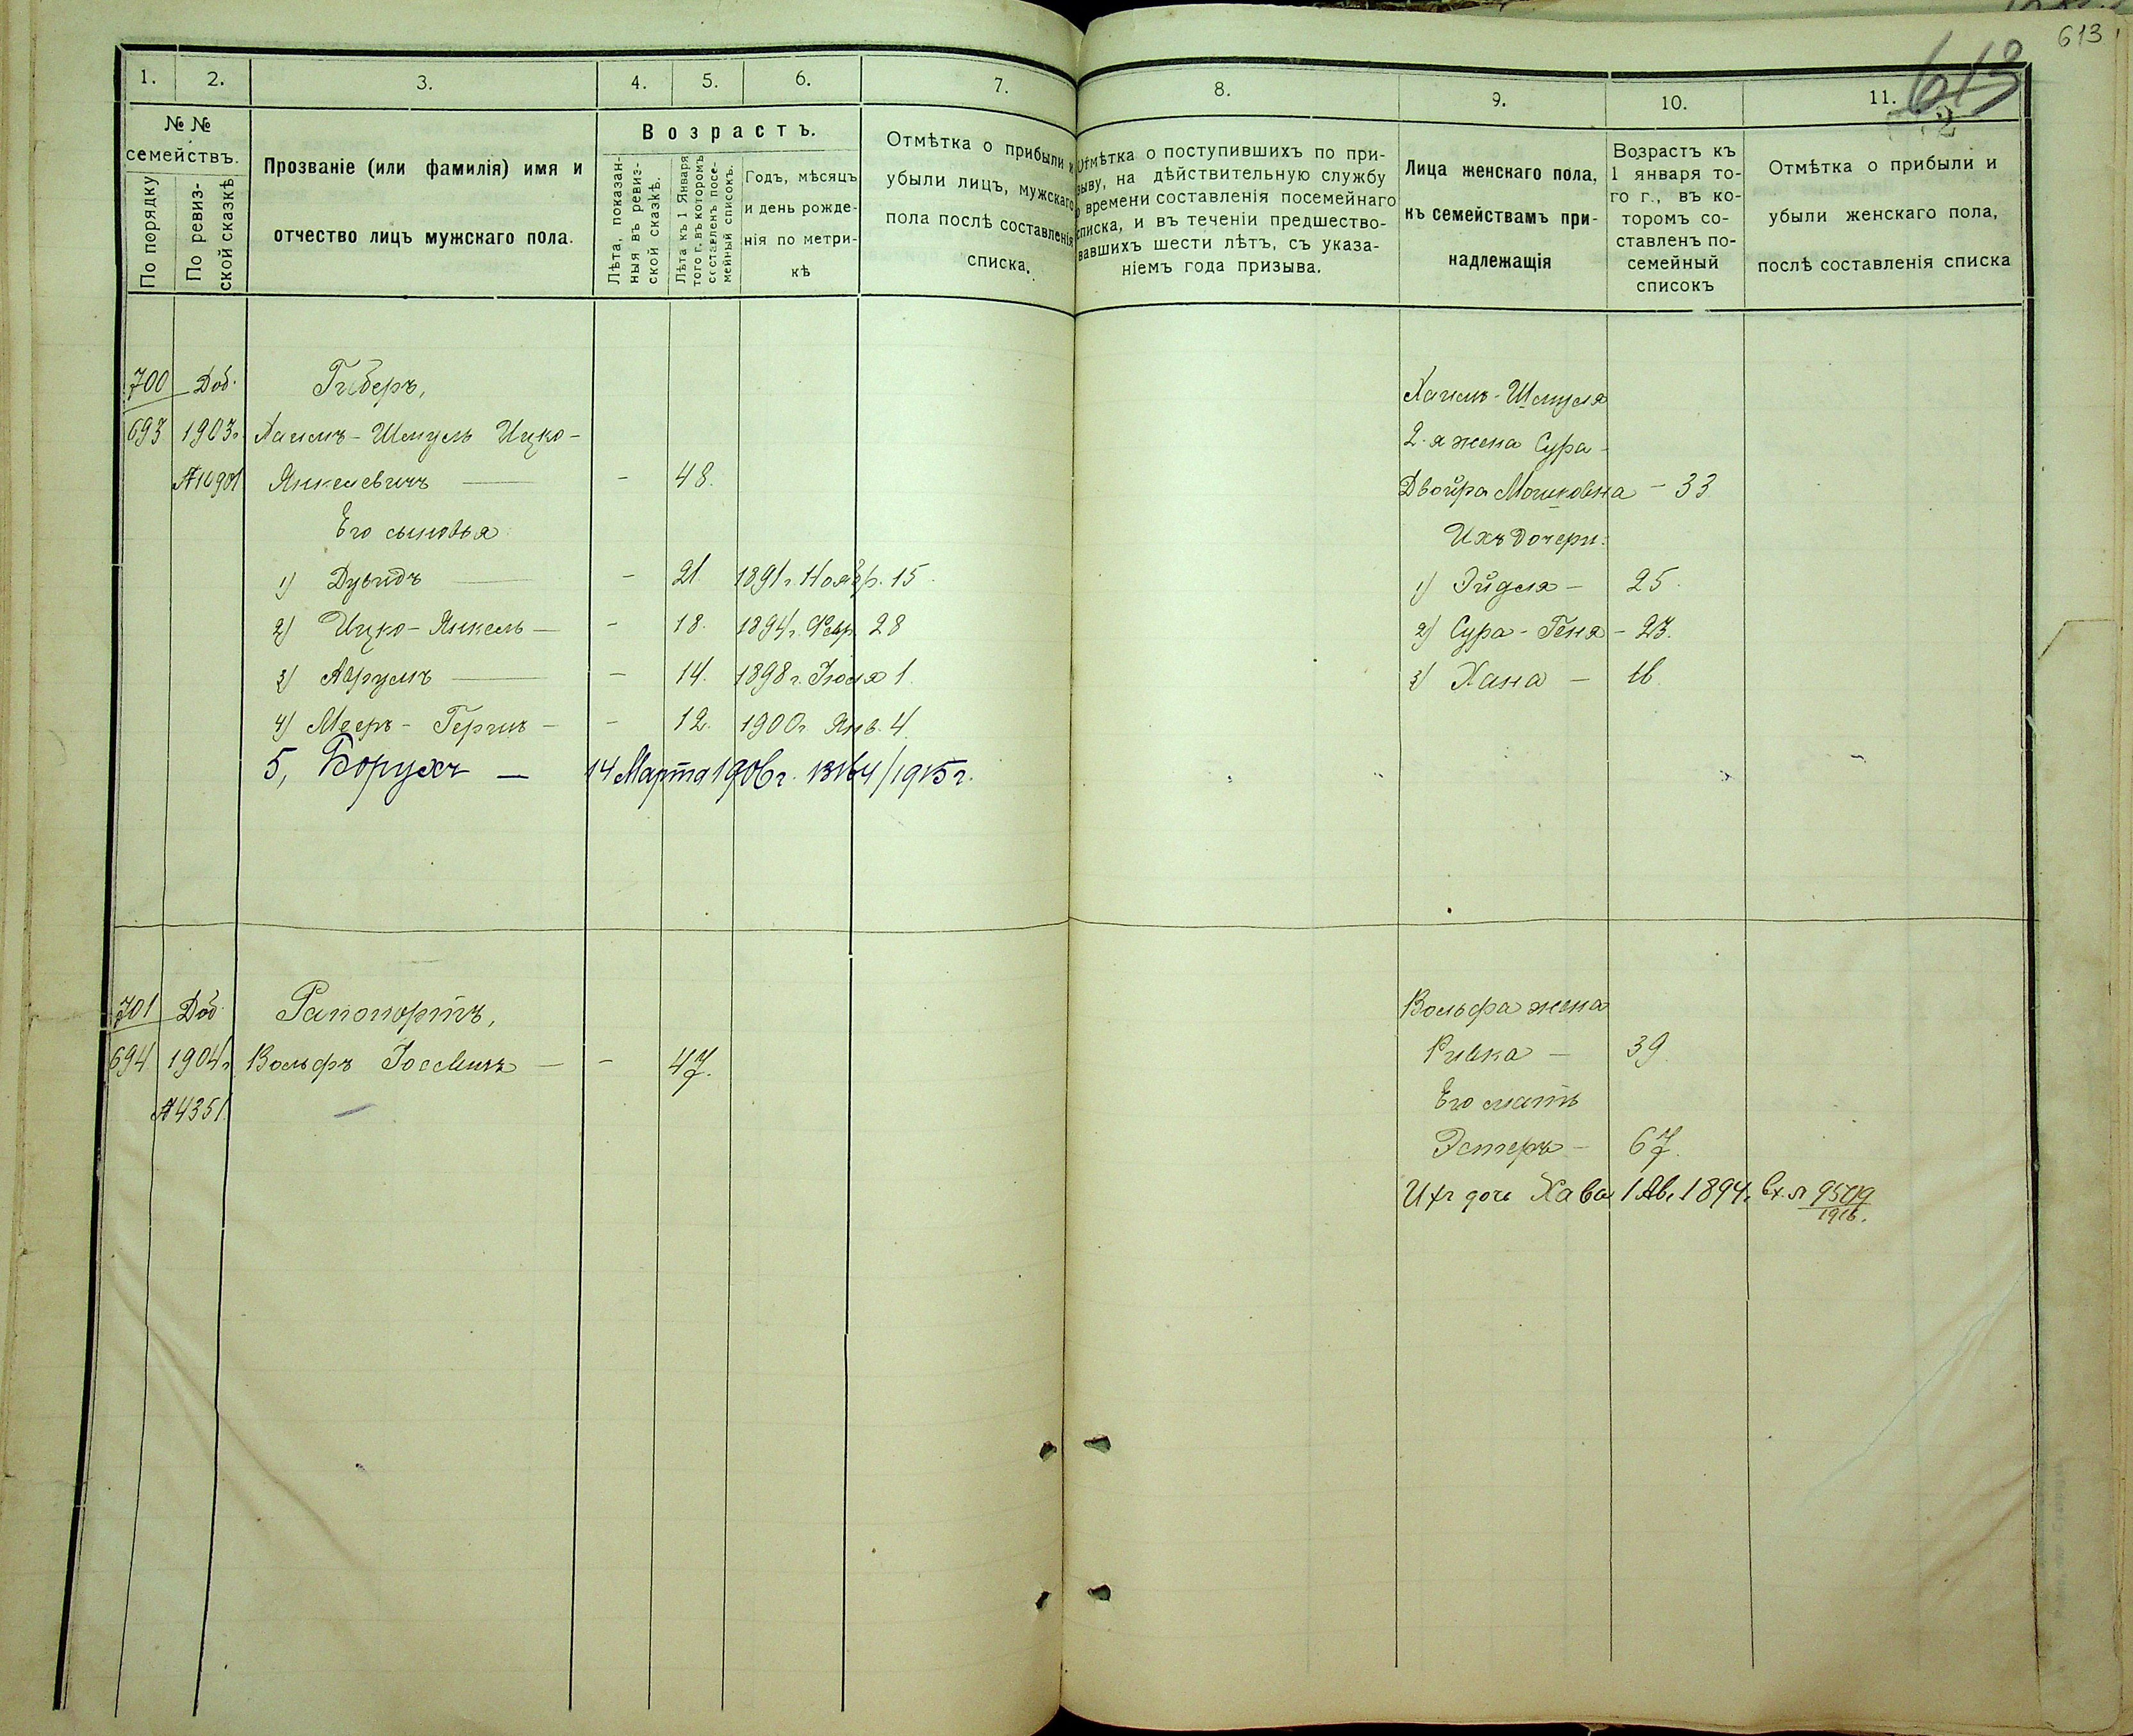 613
613
2
1. 2. 3. 4. 5. 6. 7. 8. 9. 10. 11.
№ №
семействъ.
По порядку
По ревиз-
ской сказкѣ
Прозваніе (или фамилія) имя и
отчество лицъ мужскаго пола.
Возрастъ.
Лѣта, показан-
ныя въ ревиз-
ской сказкѣ.
Лѣта къ 1 Января
того г. въ которомъ
составленъ посе-
мейный списокъ.
Годъ, мѣсяцъ
и день рожде-
нія по метри-
кѣ
Отмѣтка о прибыли и
убыли лицъ, мужскаго
пола послѣ составленія
списка.
Отмѣтка о поступившихъ по при-
зыву, на дѣйствительную службу
времени составленія посемейнаго
списка, и въ теченіи предшество-
вавшихъ шести лѣтъ, съ указа-
ніемъ года призыва.
Лица женскаго пола,
къ семействамъ при-
надлежащія
Возрастъ къ
1 января то-
го г., въ ко-
торомъ со-
ставленъ по-
семейный
списокъ
Отмѣтка о прибыли и
убыли женскаго пола,
послѣ составленія списка
700 Доб. Гиберъ,
693 1903г. Хаимъ-Шмуль Ицко-
№10901 Янкелевичъ — - 48.
Его сыновья
1) Дувидъ — - 21. 1891 г. Ноябр. 15.
2) Ицко-Янкель — - 18. 1894 г. Февр. 28
3) Аврумъ — - 14. 1898 г. Іюля 1.
4) Мееръ-Герш - - 12. 1900г. Янв. 4.
5, Борухъ — 14 Марта 1906 г. 13164/1915 г.
Хаимъ-Шмуля
2-я жена Сура-
Двойра Мошковна - 33
Ихъ дочери:
1) Эйдля - 25.
2) Сура-Геня - 23.
3) Хана - 16.
701 Доб. Рапопортъ,
694 1904г. Вольфъ Іос — - 47.
№4351.
Вольфа жена
Ривка - 39
Его мать
Эстеръ - 67.
Ихъ дочь Хава 1 Ав. 1894. Вх. №